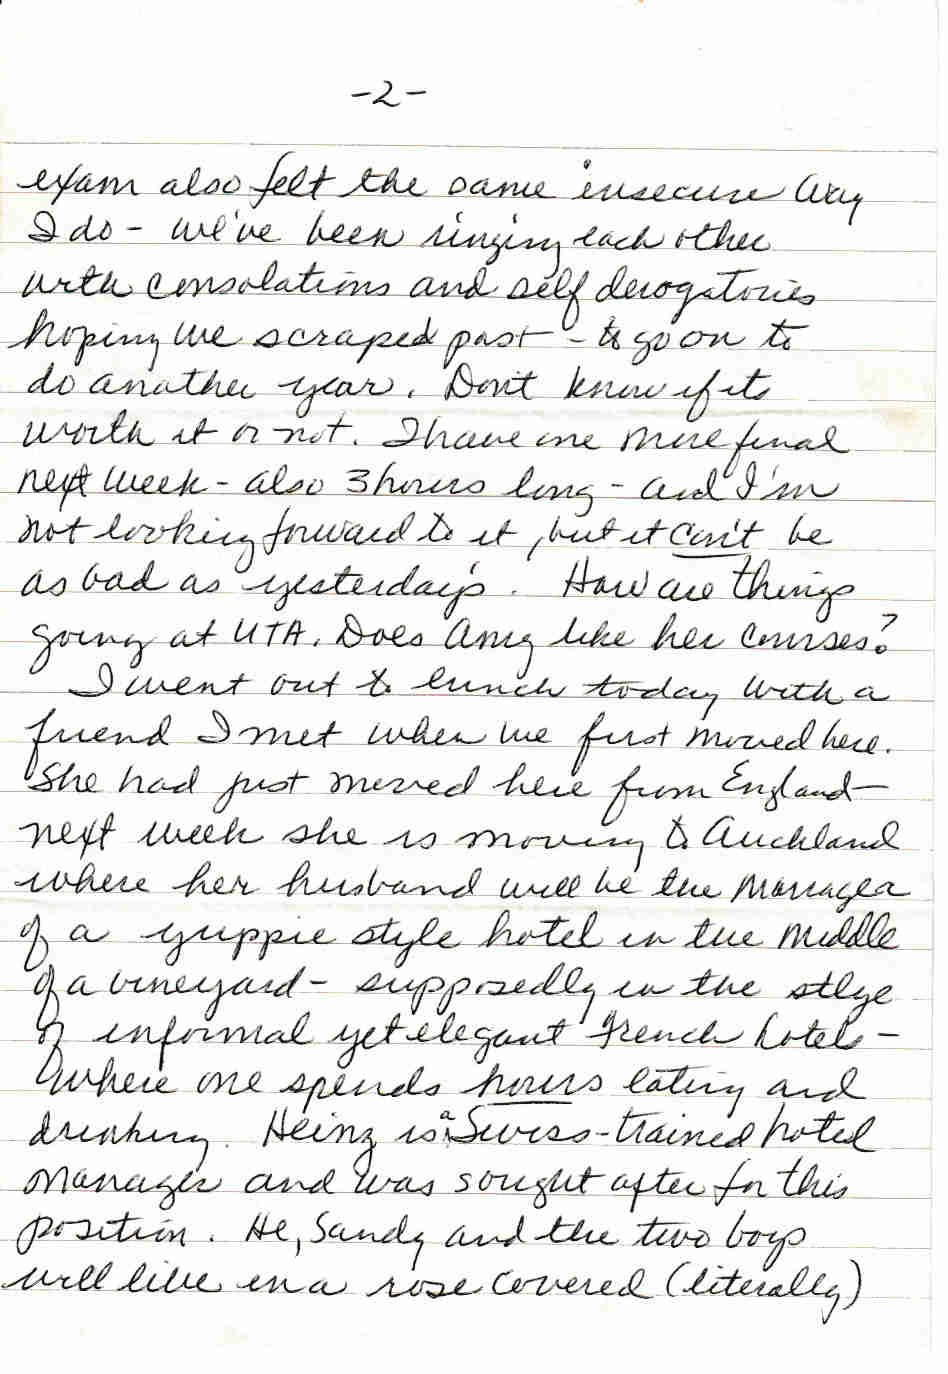 -2-
exam also felt the same insecure way
I do - we've been ringing each other
with consolations and self derogatories
hoping we scraped past - to go on to
do another year. Don't know if its
worth it or not. I have one more final
next week - also 3 hours long - and I'm
not looking forward to it, but it can't be
as bad as yesterday's. How are things
going at UTA. Does Amy like her courses?
I went out to lunch today with a
friend I met when we first moved here.
She had just moved here from England -
next week she is moving to Auckland
where her husband will be the manager
of a yuppie style hotel in the middle
of a vineyard - supposedly in the stlye
of informal yet elegant French hotels -
where one spends hours eating and
drinking. Heinz is a Swiss-trained hotel
manager and was sought after for this
position. He, Sandy and the two boys
will live in a rose covered (literally)